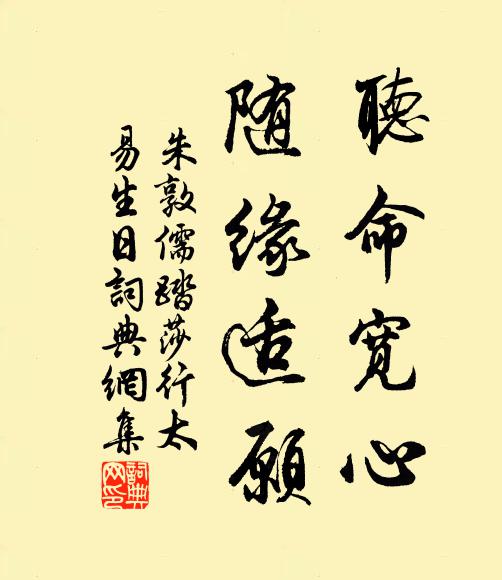 聽命寬心
随緣适願
朱敦儒踏莎行太
易生日詞典網集
詞典網印